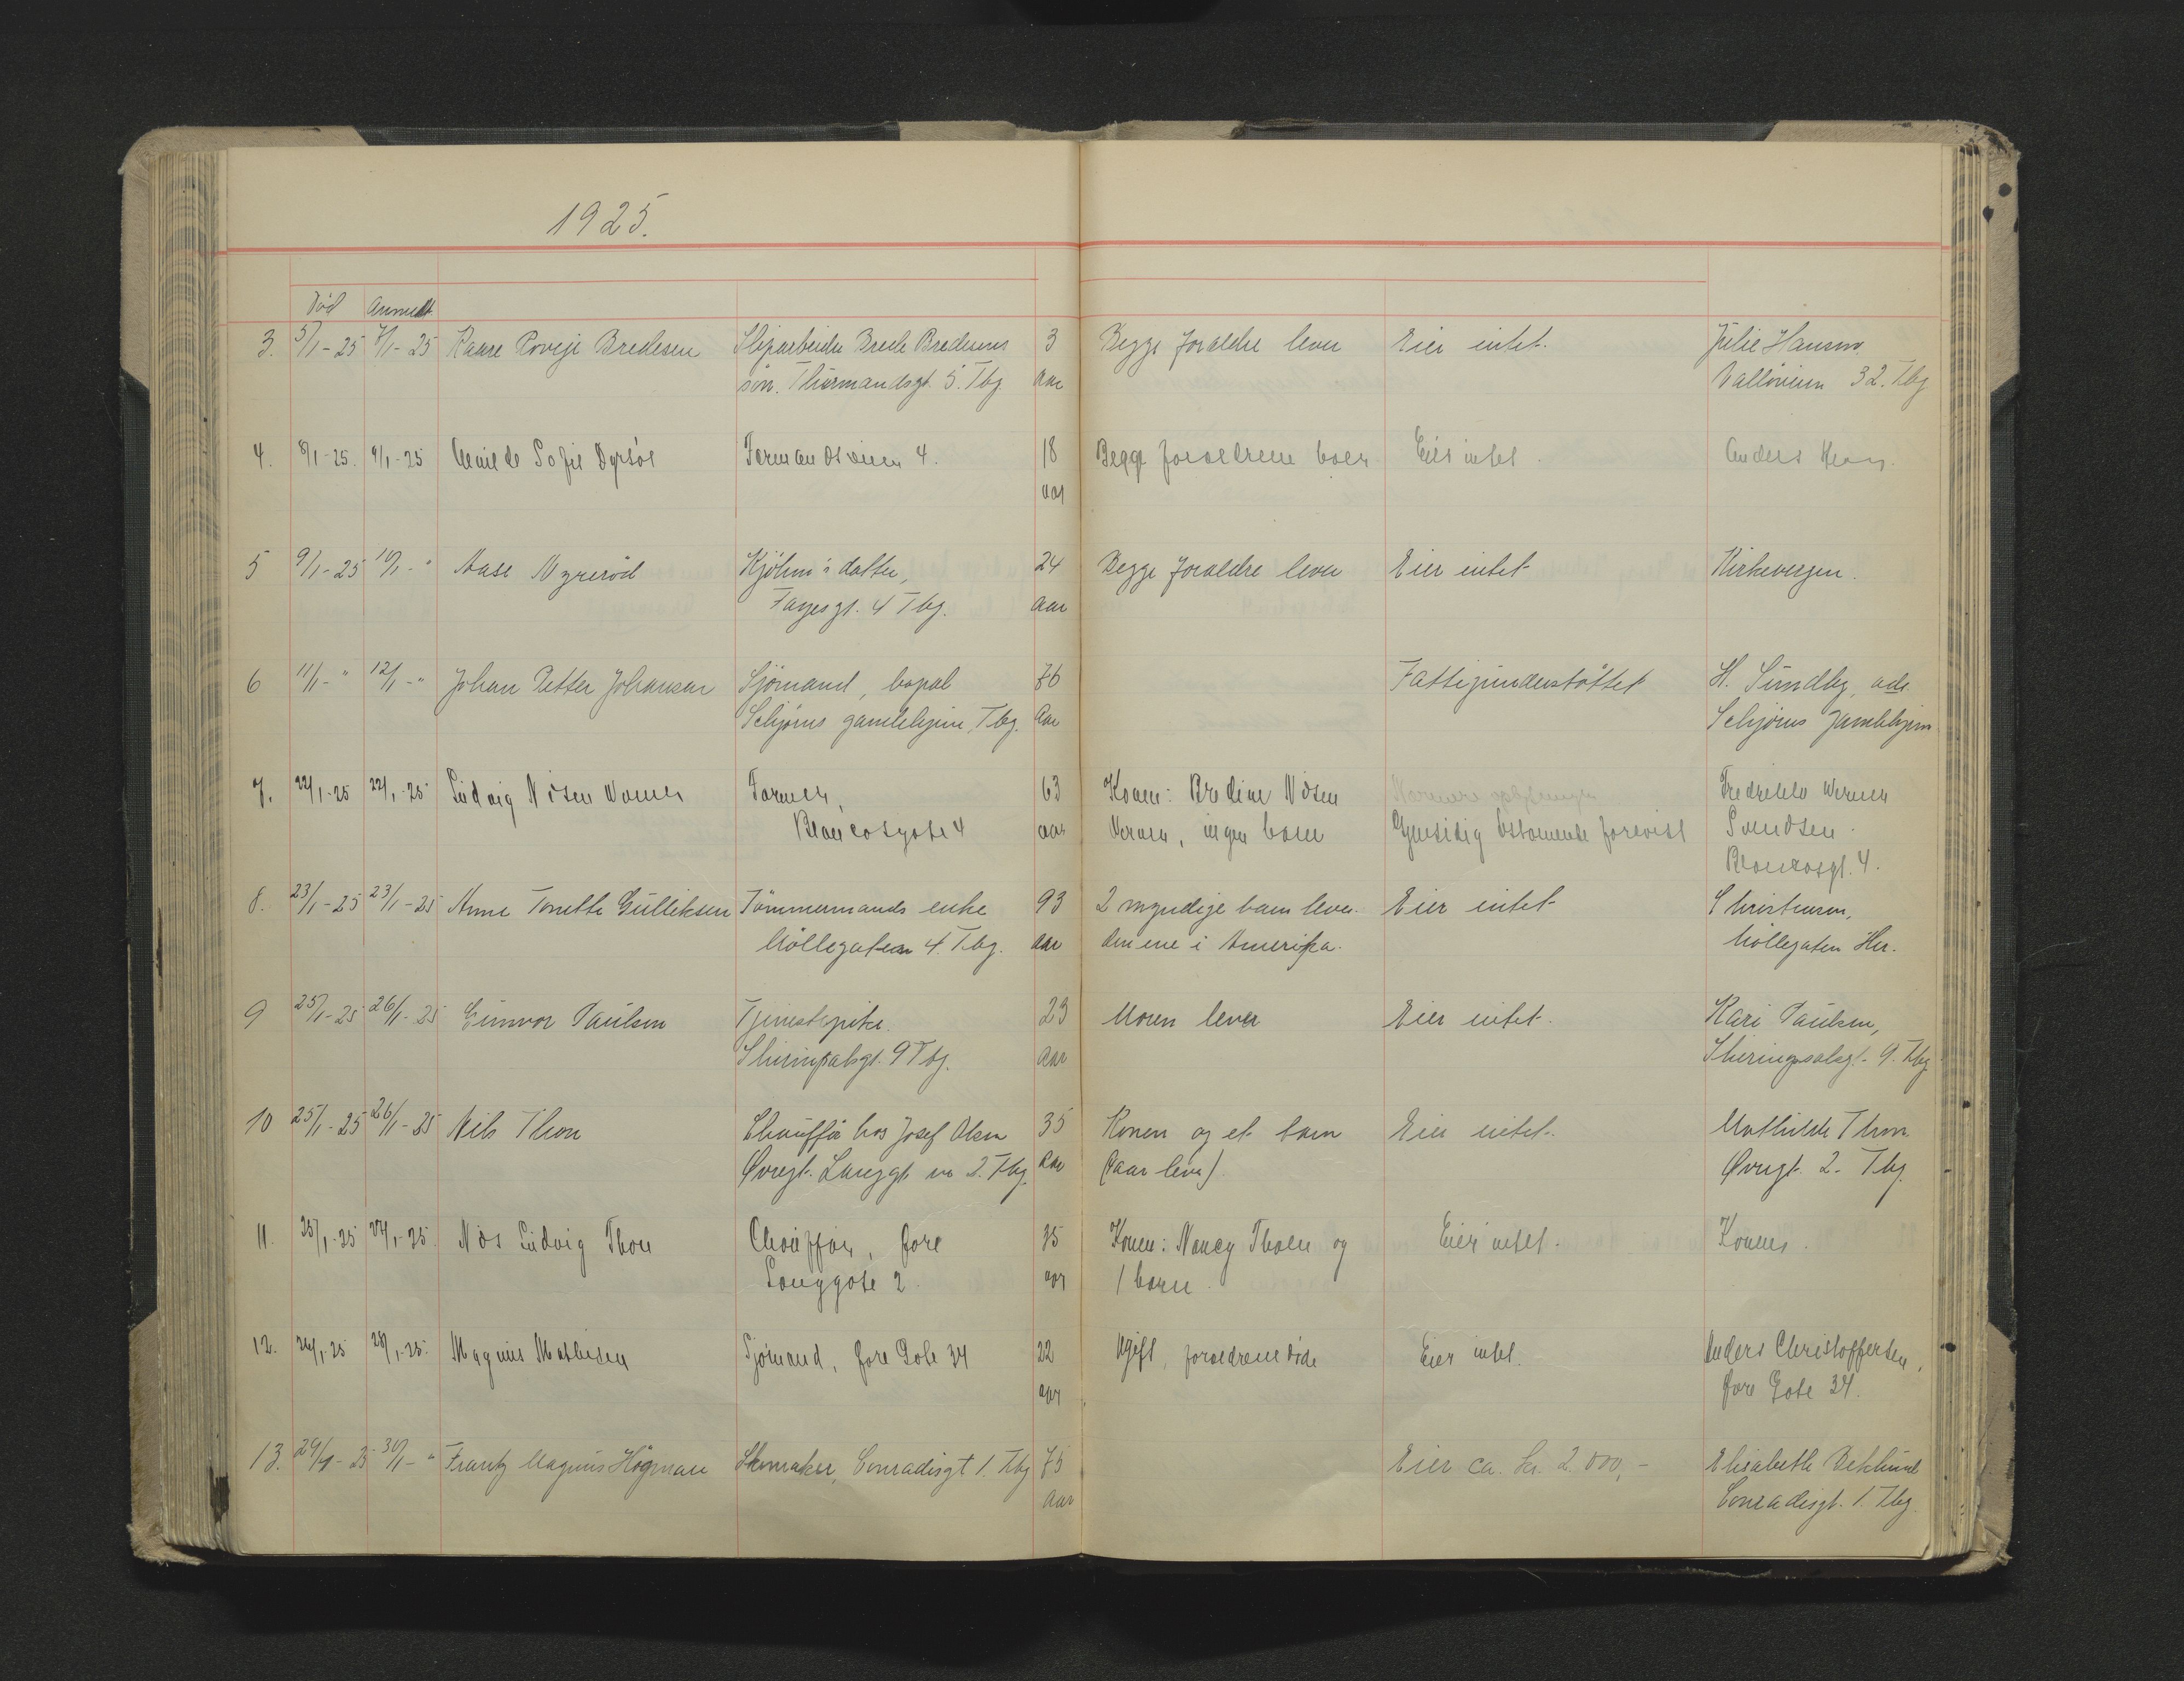 1925.
Död Anmeldt
3. 5/1-25 7/1-25 Kaare Roveje Bredesen Sliparbeider Brede Bredesens 3 Begge foreldre lever Eier intet. Julie Hansen
sön. Thurmandsgt. 5. Tbg aar Vallöveien 32. Tbg
4. 8/1-25. 9/1-25 Sofie Dyrsöe 4. 18 Begge foreldrene lever Eier intet. Anders
aar
5 9/1-25 10/1-" Aase Nyreröd datter, 24 Begge foreldre lever Eier intet Kirkevergen.
Fayesgt. 4 Tbg. aar
6 11/1-" 12/1-" Johan Petter Johansen Sjömand, bopæl 76 Fattigunderstöttet H. Sundby, adr.
gamlehjem, Tbg. Aar gamlehjem
7. 22/1-25 22/1-25 Ludvig Nilsen Farver, 63 Konen: Bredine Nilsen Nærmere oplysninger Fredrikke
4 aar ingen barn Gjensidig testamente forevist Svendsen.
4.
8. 23/1-25 23/1-25 Anne Tonette Gulliksen Tömmermands enke 93 2 myndige barn lever. Eier intet Christensen,
Möllegaten 4. Tbg. aar den ene i Amerika. Möllegaten Her.
9 25/1-25 26/1-25 Gunvor Paulsen Tjenestepike. 23 Moren lever Eier intet. Kari Paulsen,
Skiringsalsgt. 9 Tbg. aar Skiringsalsgt. 9. Tbg
10 25/1-25 26/1-25 Nils Thon Chaufför hos Josef Olsen 35 Konen og et barn Eier intet. Mathilde Thon
Øvregt. Langgt no 2. Tbg. aar lever). Øvregt. 2. Tbg.
11. 25/1-25 27/1-25. Nils Ludvig Thon Chaufför, Øvre 35 Konen: Nancy Thoen og Eier intet. Konen.
Langgate 2. aar 1 barn.
12. 26/1-25 28/1-25. Magnus Mathisen Sjömand, Øvre Gate 34 22 Ugift, foreldrene döde Eier intet. Anders Christoffersen,
aar Øvre Gate 34.
13. 29/1-25 30/1-" Frantz Magnus Högman Skomaker, Conradisgt 1. Tbg 75 Eier ca. kr. 2.000,- Elisabeth
aar Conradisgt. 1. Tbg.